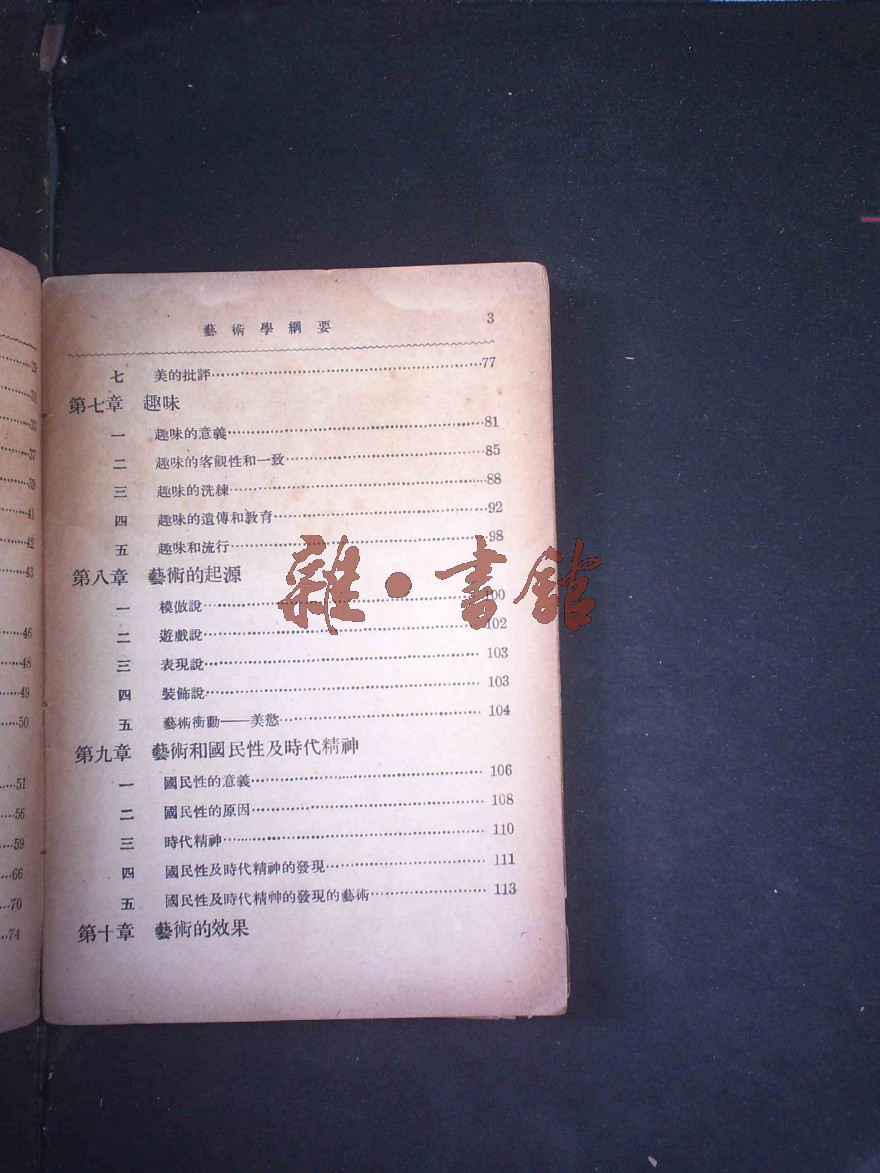 29
31
33
37
39
41
42
43
46
48
49
50
51
56
59
66
70
74
藝術學綱要 3
七 美的批評 77
第七章 趣味
一 趣味的意義 81
二 趣味的客觀性和一致 85
三 趣味的洗練 88
四 趣味的遺傳和教育 92
五 趣味和流行 98
第八章 藝術的起源
一 模倣說 100
二 遊戲說 102
三 表現說 103
四 裝飾說 103
五 藝術衝動——美慾 104
第九章 藝術和國民性及時代精神
一 國民性的意義 106
二 國民性的原因 108
三 時代精神 110
四 國民性及時代精神的發現 111
五 國民性及時代精神的發現的藝術 113
第十章 藝術的效果
雜·書館